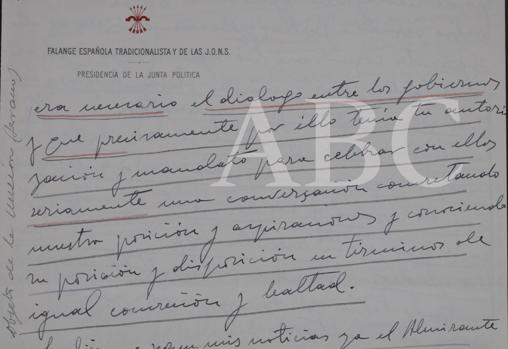 FALANGE ESPAÑOLA TRADICIONALISTA Y DE LAS J.O.N.S.
PRESIDENCIA DE LA JUNTA POLITICA
era necesario el dialogo entre los gobiernos
y que precisamente por ello tenia tu autori
zación y mandato para celebrar con ellos
seriamente una conversación concretando
nuestra posición y aspiraciones y conociendo
su posición y disposición en terminos de
igual concreción y lealtad.
mis noticias ya el Almirante
objeto de la
ABC